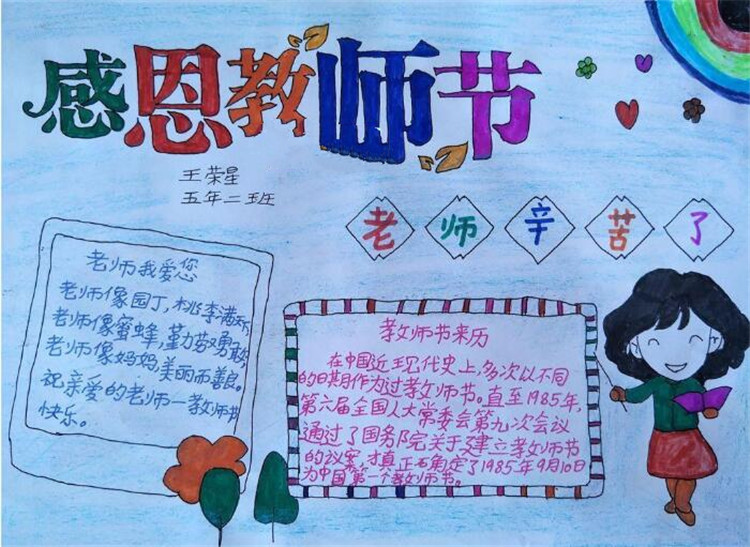 感恩教师节
王荣星
五年二班
老师辛苦了
老师我爱您
老师像园丁,桃李满天下,
老师像蜜蜂,勤劳勇敢,
老师像妈妈,美丽而善良。
祝亲爱的老师一教师节
快乐。
教师节来历
在中国近现代史上,多次以不同
的日期作为过教师节。直至1985年,
第六届全国人大常委会第九次会议
通过了国务院关于建立教师节
的议案,才真正确定了1985年9月10日
为中国第一个教师节。